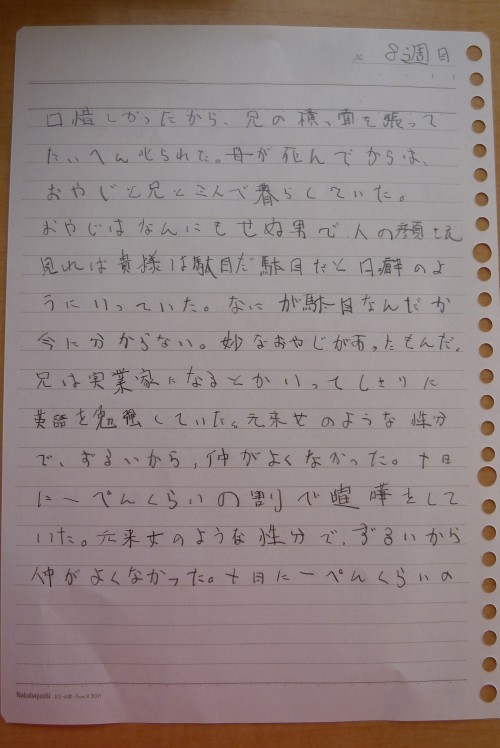 8週目
口惜しかったから、兄の横っ面を張って
たいへん叱られた。母が死んでからは、
おやじと兄と三人で暮らしていた。
おやじはなんにもせぬ男で人の顔さえ
見れば貴様は駄目だ駄目だと口癖のよ
うにいっていた。なにが駄目なんだか
今に分からない。妙なおやじがあったもんだ。
兄は実業家になるとかいってしきりに
英語を勉強していた。元来女のような性分
で、ずるいから、仲がよくなかった。十日
に一ぺんくらいの割で喧嘩をして
いた。元来女のような性分で、ずるいから
仲がよくなかった。十日に一ぺんくらいの
Nakabayoshi